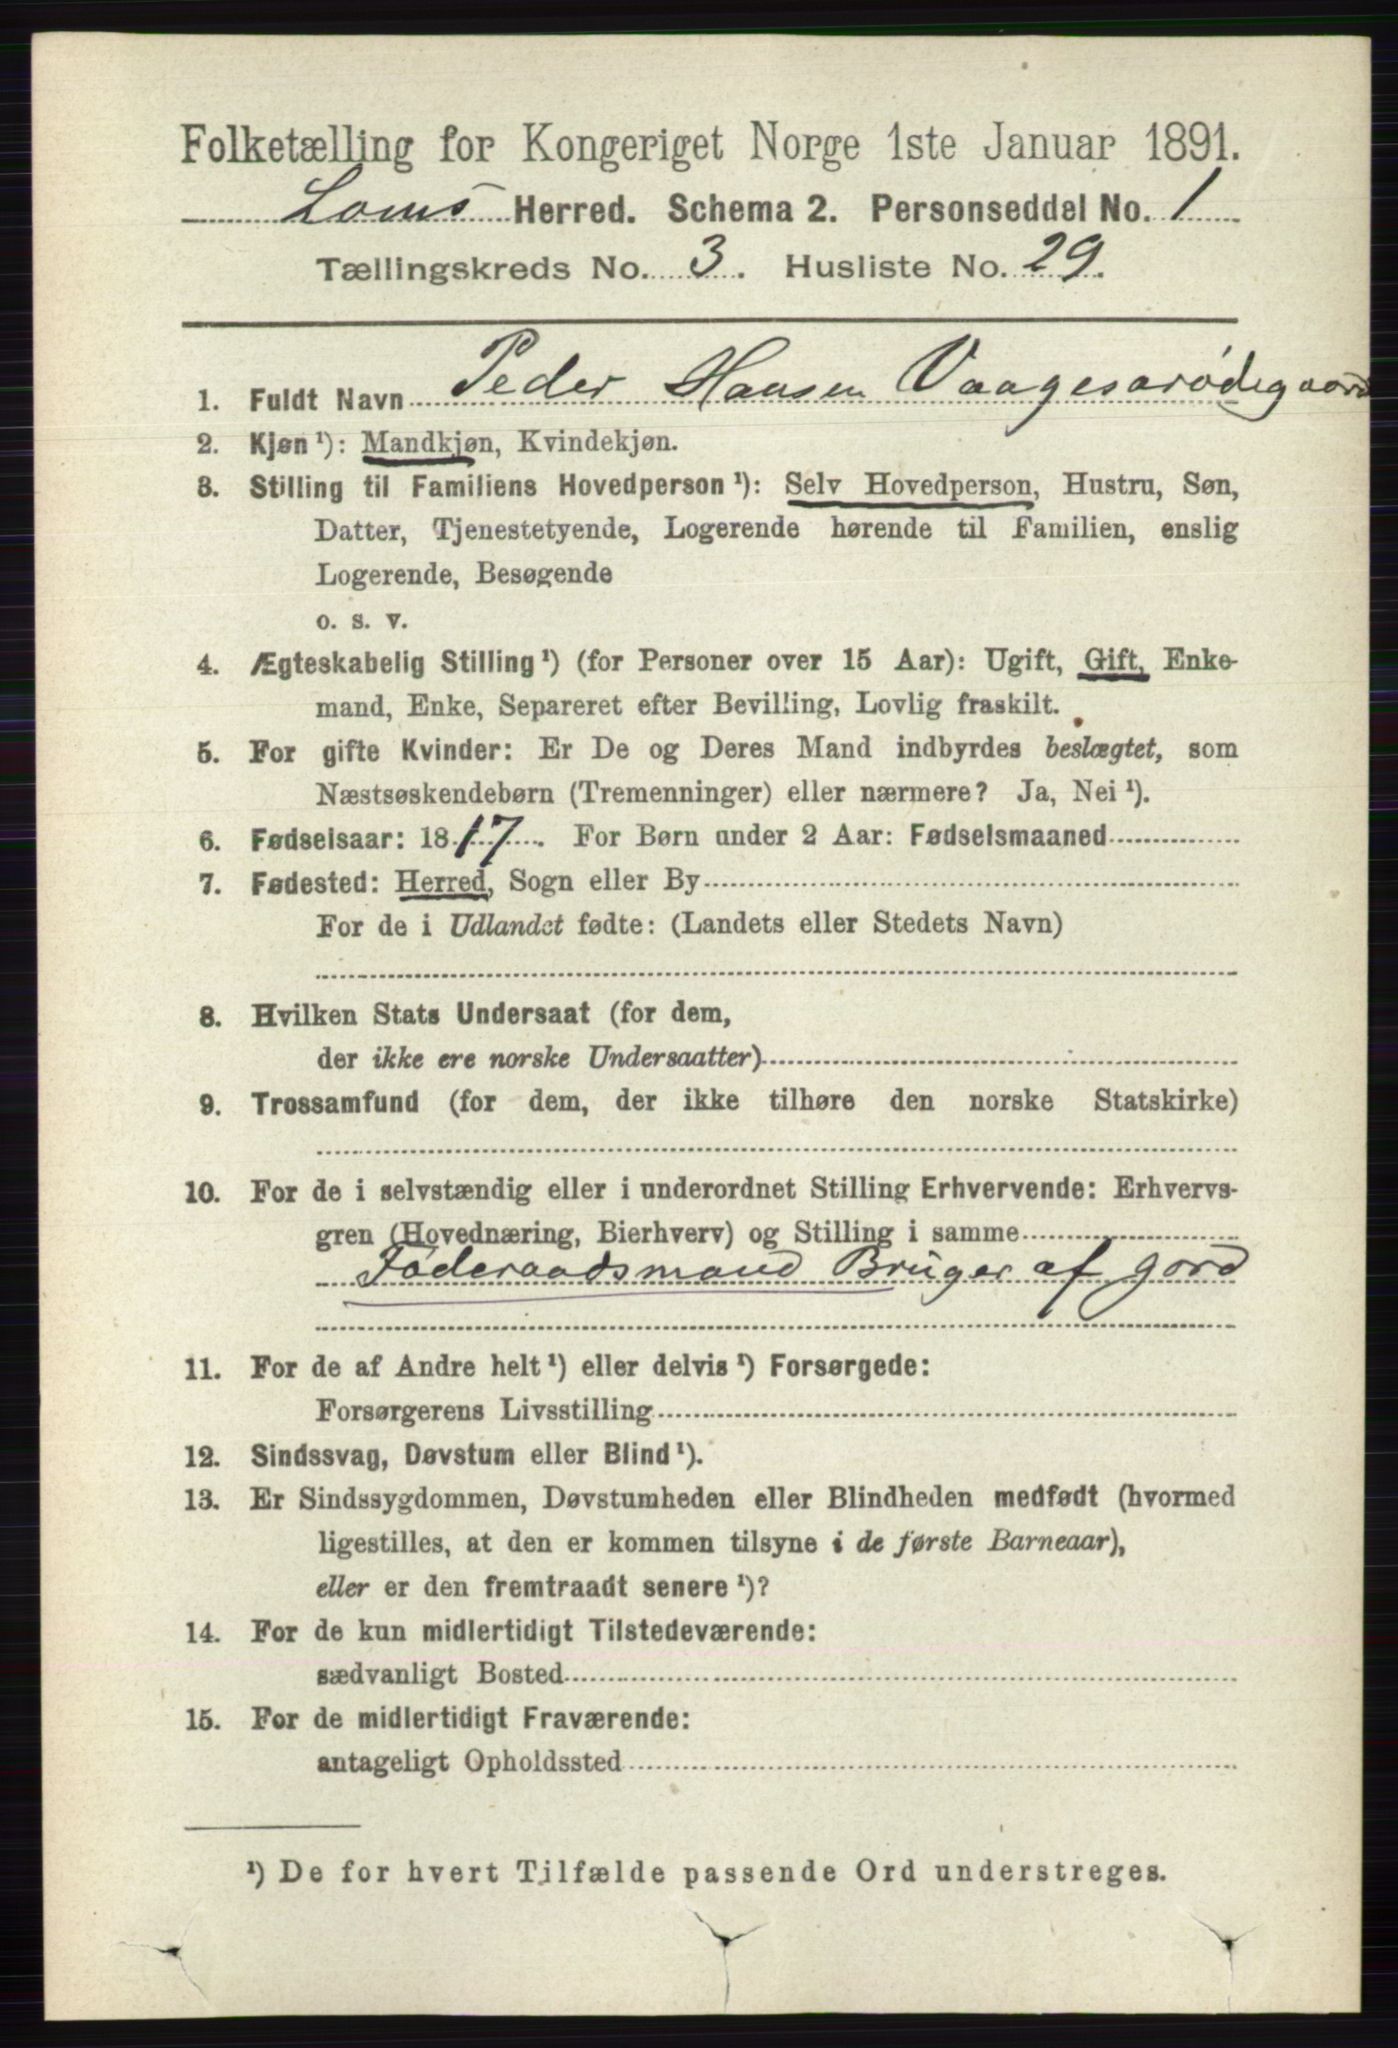 Folketælling for Kongeriget Norge 1ste Januar 1891.
Loms Herred. Schema 2. Personseddel No. 1
Tællingskreds No. 3. Husliste No. 29.
1. Fuldt Navn Peder Hansen Vaagesarødegaard
2. Kjøn ¹): Mandkjøn, Kvindekjøn.
3. Stilling til Familiens Hovedperson ¹): Selv Hovedperson, Hustru, Søn,
Datter, Tjenestetyende, Logerende hørende til Familien, enslig
Logerende, Besøgende
o. s. v.
4. Ægteskabelig Stilling ¹) (for Personer over 15 Aar): Ugift, Gift, Enke-
mand, Enke, Separeret efter Bevilling, Lovlig fraskilt.
5. For gifte Kvinder: Er De og Deres Mand indbyrdes beslægtet, som
Næstsøskendebørn (Tremenninger) eller nærmere? Ja, Nei ¹).
6. Fødselsaar: 1817. For Børn under 2 Aar: Fødselsmaaned
7. Fødested: Herred, Sogn eller By
For de i Udlandet fødte: (Landets eller Stedets Navn)
8. Hvilken Stats Undersaat (for dem,
der ikke ere norske Undersaatter)
9. Trossamfund (for dem, der ikke tilhøre den norske Statskirke)
10. For de i selvstændig eller i underordnet Stilling Erhvervende: Erhvervs-
gren (Hovednæring, Bierhverv) og Stilling i samme
Føderaadsmand Bruger af gord
11. For de af Andre helt ¹) eller delvis ¹) Forsørgede:
Forsørgerens Livsstilling
12. Sindssvag, Døvstum eller Blind ¹).
13. Er Sindssygdommen, Døvstumheden eller Blindheden medfødt (hvormed
ligestilles, at den er kommen tilsyne i de første Barneaar),
eller er den fremtraadt senere ¹)?
14. For de kun midlertidigt Tilstedeværende:
sædvanligt Bosted
15. For de midlertidigt Fraværende:
antageligt Opholdssted
¹) De for hvert Tilfælde passende Ord understreges.